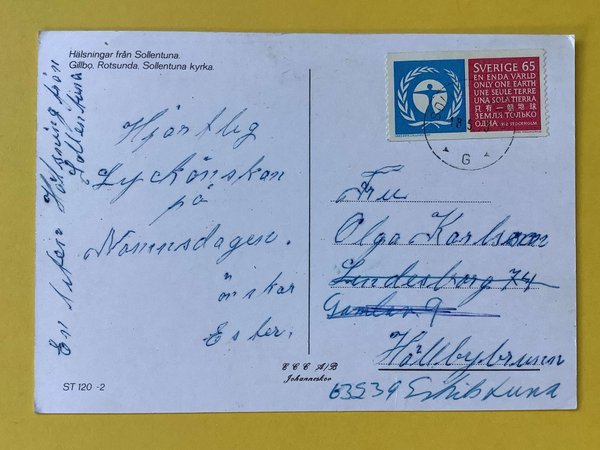 Hälsningar från Sollentuna.
Gillbo, Rotsunda, Sollentuna kyrka.
En liten Hälsning från
Sollentuna
Hjärtlig
Lyckönskan
på
Namnsdagen.
önskar
Ester.
ST 120 -2
E C C A/B
Johanneshov
SVERIGE 65
EN ENDA VÄRLD
ONLY ONE EARTH
UNE SEULE TERRE
UNA SOLA TIERRA
只有一個地球
ЗЕМЛЯ ТОЛЬКО
ОДНА
STOCKHOLM
G
Fru
Olga Karlsson
74
9
Hällbybrunn
63239 Eskilstuna